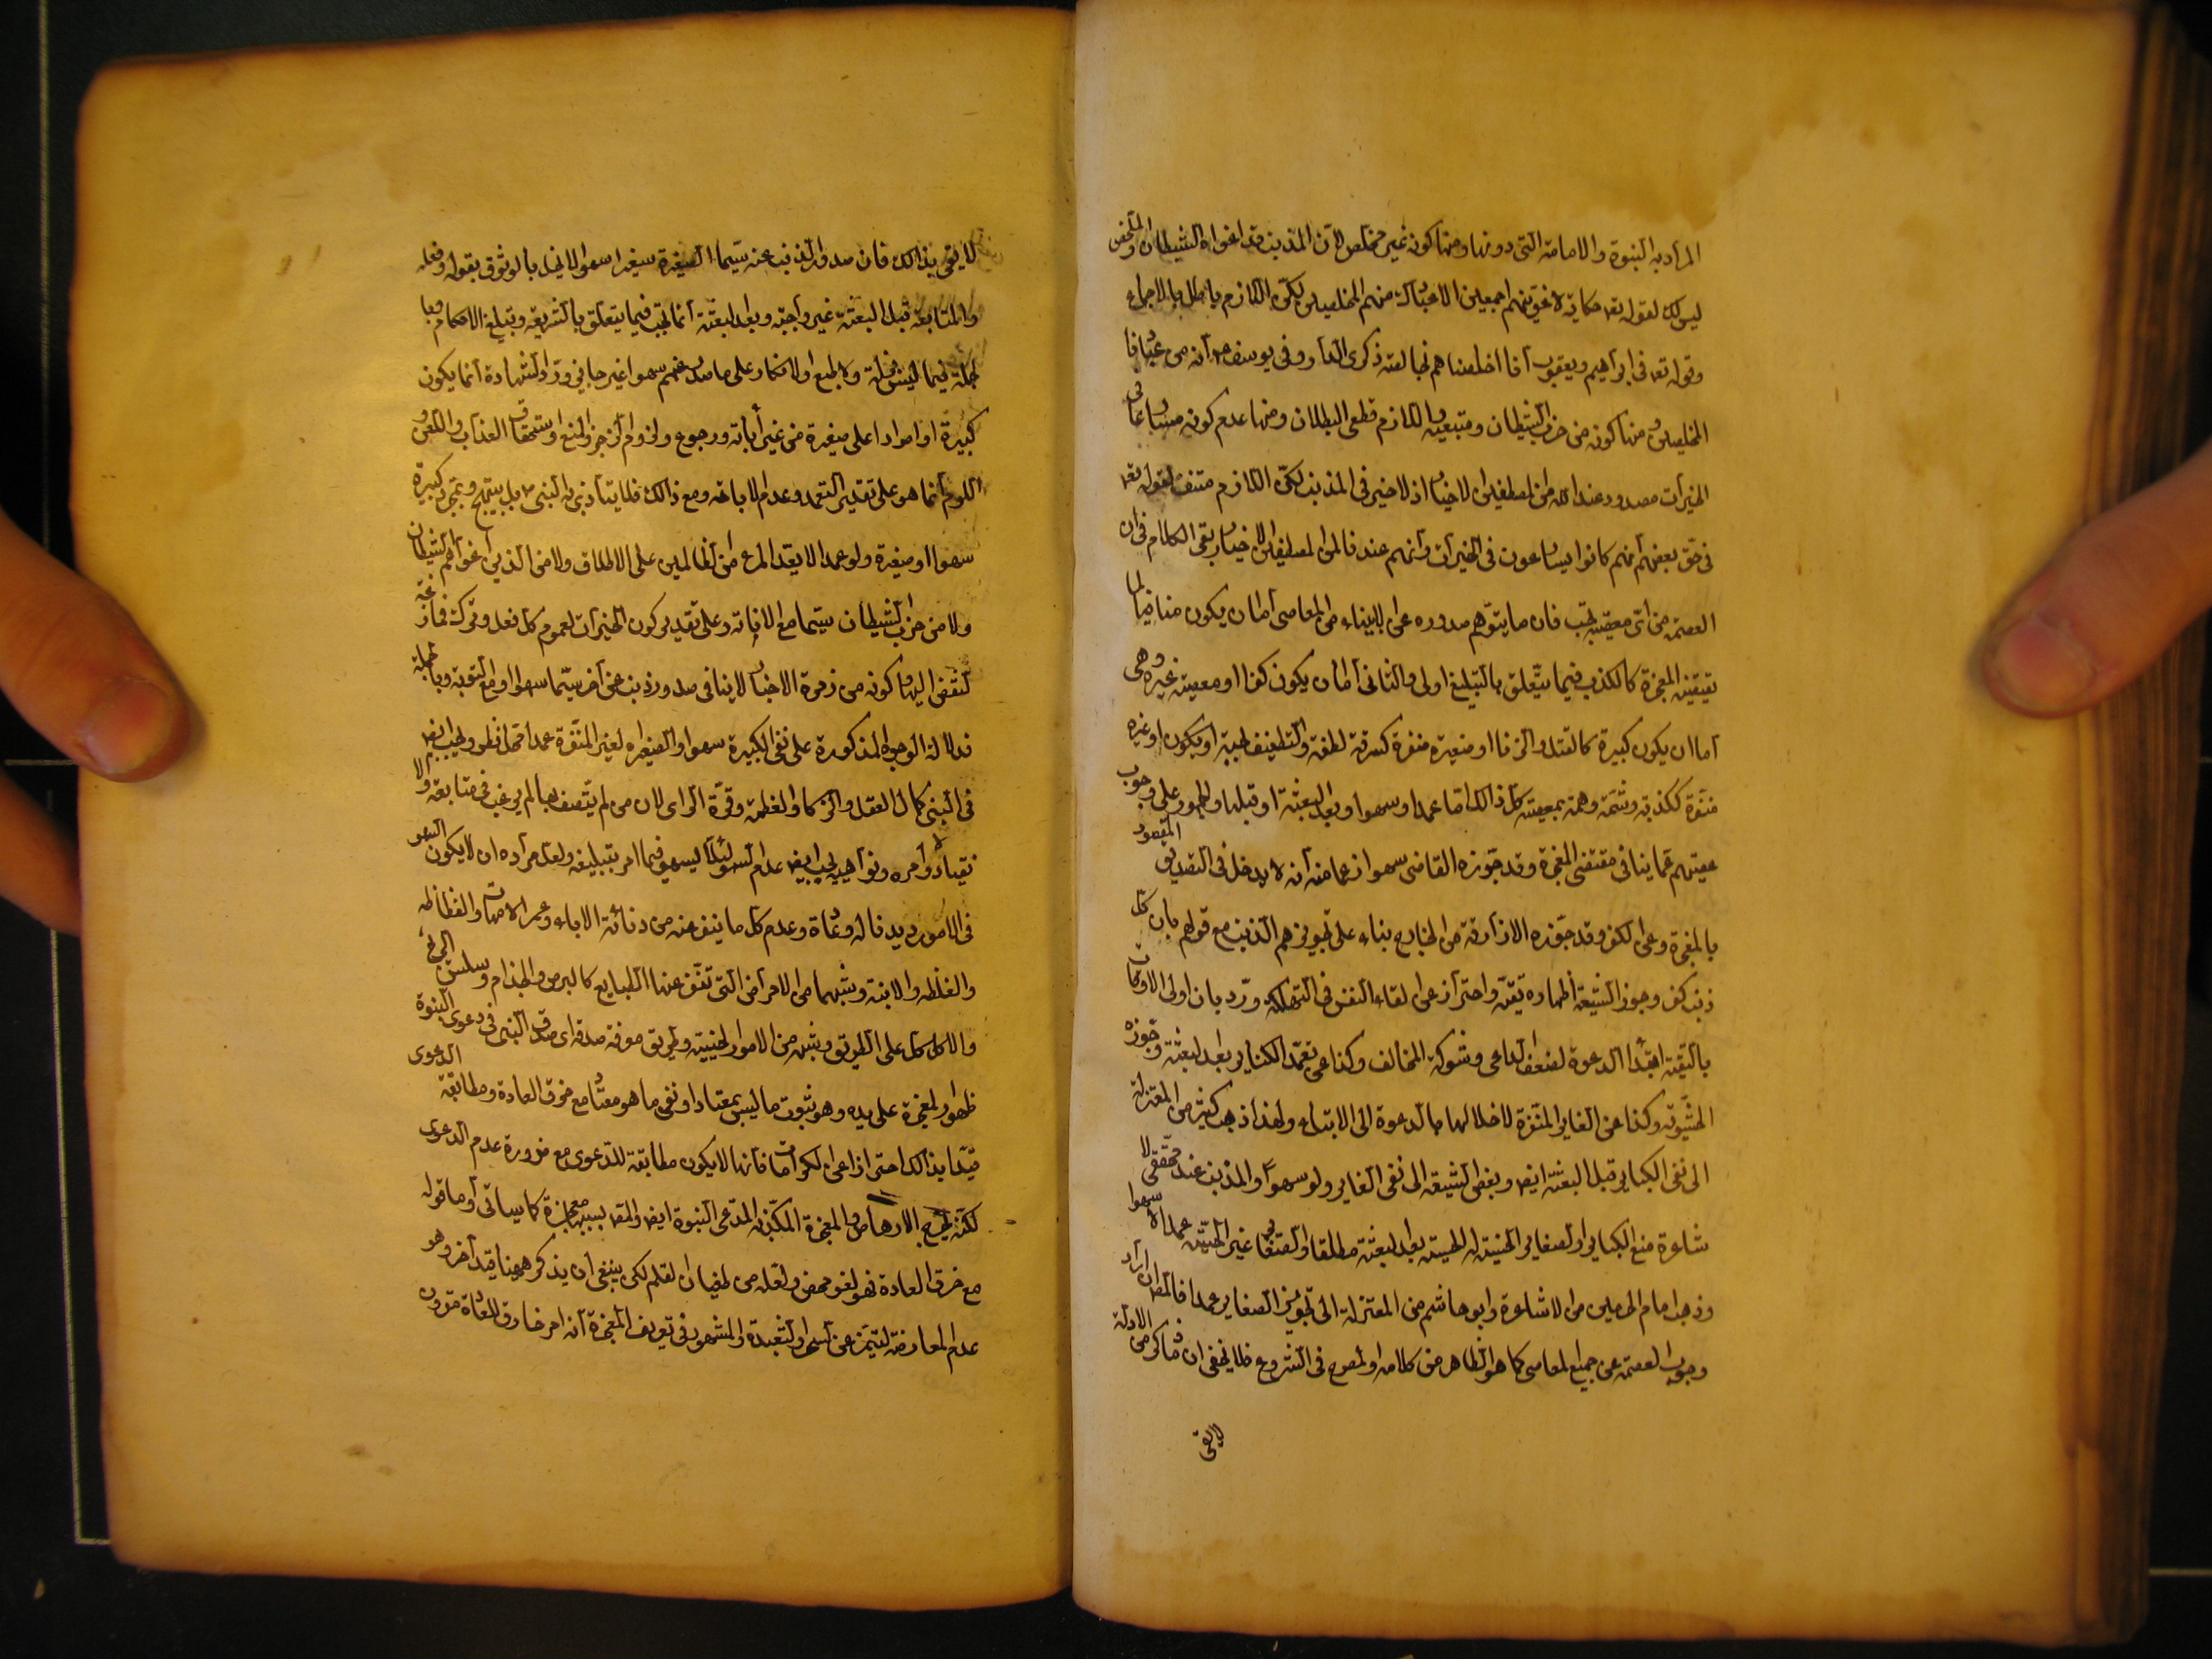 المراد به النبوة والامامة التى دونها ومنها كونه غير مخلص لان المذنب قد اغواه الشيطان والمخلص
ليس كك لقوله تعا حكاية لاغوينهم اجمعين الا عبادك منهم المخلصين لكن اللازم باطل بالاجماع
وقوله تعا فى ابراهيم ويعقوب انا اخلصناهم بخالصة ذكرى الدار وفى يوسف انه من عبادنا
المخلصين ومنها كونه من حزب الشيطان ومتبعيه واللازم قطعى البطلان ومنها عدم كونه مسارعا فى
الخيرات معدود عند الله من المصطفين الاخيار اذ لا خير فى المذنب لكن اللازم منتف لقوله تعا
فى حق بعضهم انهم كانوا يسارعون فى الخيرات وانهم عندنا لمن المصطفين الاخيار بقى الكلام فى ان
العصمة من اى معصية تجب فان ما يتوهم صدوره عن الانبياء من المعاصى اما ان يكون منافيا لما
يقتضيه المعجزة كالكذب فيما يتعلق بالتبليغ اولى والثانى اما ان يكون كفرا او معصية غيره وهى
اما ان يكون كبيرة كالقتل والزنا او صغيرة منفرة كسرقة لقمة والتطفيف بحبة او يكون اوغيره
منفرة ككذبة وشتمة وهمة بمعصية كل ذالك اما عمدا وسهوا وبعد البعثة او قبلها والجمهور على وجوب
عصمتهم عما ينافى مقتضى المعجزة وقد جوزه القاضى سهوا زعما منه انه لا يدخل فى التصديق المقصود
بالمعجزة وعن الكفر وقد جوزه الازارقة من الخوارج بناء على تجويزهم الذنب مع قولهم بان كل
ذنب كفر وجوز الشيعة اظهاره تقية واحترازا عن القاء النفس فى التهلكة ورد بان اولى الاوقات
بالتقية ابتداء الدعوة لضعف الداعى وشوكة المخالف وكذا عن تعمد الكبائر بعد البعثة وجوزه
الحشوية وكذا عن الصغاير المنفرة لاخلالها بالدعوة الى الاتباع ولهذا ذهب كثير من المعتزلة
الى نفى الكباير قبل البعثة ايضا وبعض الشيعة الى نفى الصغاير ولو سهوا والمذهب عند محققى الا
شاعرة منع الكباير والصغاير الخسيسة بعد البعثة مطلقا والصغاير غير الخسيسة عمدا لا سهوا
وذهب امام الحرمين من الاشاعرة وابو هاشم من المعتزلة الى تجويز الصغاير عمدا فالمص ان اراد
وجوب العصمة عن جميع المعاصى كما هو الظاهر من كلامه والمصرح فى الشروع فلا يخفى ان ما ذكر من الادلة
لايفى
لا يفى بذالك فان صدور الذنب عنه سيما الصغيرة سهوا لا يخل بالوثوق بقوله وفعله
والمتابعة قبل البعثة غير واجبة وبعد البعثة انما تجب فيما يتعلق بالشريعة وتبليغ الاحكام وبا
لجملة فيما ليس بزلة ولا طبع والانكار على ما صدر عنهم سهوا غير جايز ورد الشهادة انما يكون
كبيرة او اصرارا على صغيرة من غير انابة ورجوع ولزوم الزجر والمنع واستحقاق العذاب واللعن و
اللوم انما هو على تقدير التعمد وعدم الانابة ومع ذالك فلا يتأذى به النبى بل يبتهج وبمجرد كبيرة
سهوا او صغيرة ولو عمدا لا يعد المرء من الظالمين على الاطلاق ولا من الذين اغواهم الشيطان
ولا من حزب الشيطان سيما مع الانابة وعلى تقدير كون الخيرات لعموم كل فعل وترك
لنقض اليها وكونه من زمرة الاخيار لا ينافى صدور ذنب عن آخر سيما سهوا او مع التوبة وبالجملة
فدلالة الوجوه المذكورة على نفى الكبيرة سهوا والصغيرة الغير المنفرة عمدا محل نظر ويجب ايضا
فى النبى كمال العقل والذكاء والفطنة وقوة الراى لان من لم يتصف بها لم يرغب فى متابعته ولا
ينقياد اوامره ونواهيه ويجب ايضا عدم السهو لئلا يسهو فيما امر بتبليغه ولعل مراده ان لا يكون السهو
فى الامور ديدنا له وعادة وعدم كل ما ينفر عنه من دناءة الاباء وعهر الامهات والفظاظة
والغلظة والابنة وشبهها من الامراض التى تنفر عنها الطبايع كالبرص والجذام وسلس الريح
والاكل على الطريق وشبهه من الامور الخسيسة وطريق معرفة صدقه اى صدق النبى فى دعوى النبوة
ظهور المعجزة على يده وهو ثبوت ما ليس بمعتاد او نفى ما هو معتاد مع خرق العادة ومطابقة الدعوى
قيد بذالك احترازا عن الكرامات فانها لا يكون مطابقة للدعوى مع ضرورة عدم الدعوى
لكنه يخرج الارهاص والمعجزة المكذبة المدعى النبوة ايضا والمقر بسببها معجزة كما سياتى واما قوله
مع خرق العادة فهو لغو محض ولعله من طغيان القلم لكن ينبغى ان يذكر ههنا قيد آخر وهو
عدم المعارضة لتيميز عن السحر والشعبدة والمشهور فى تعريف المعجزة انه امر خارق للعادة مقرون